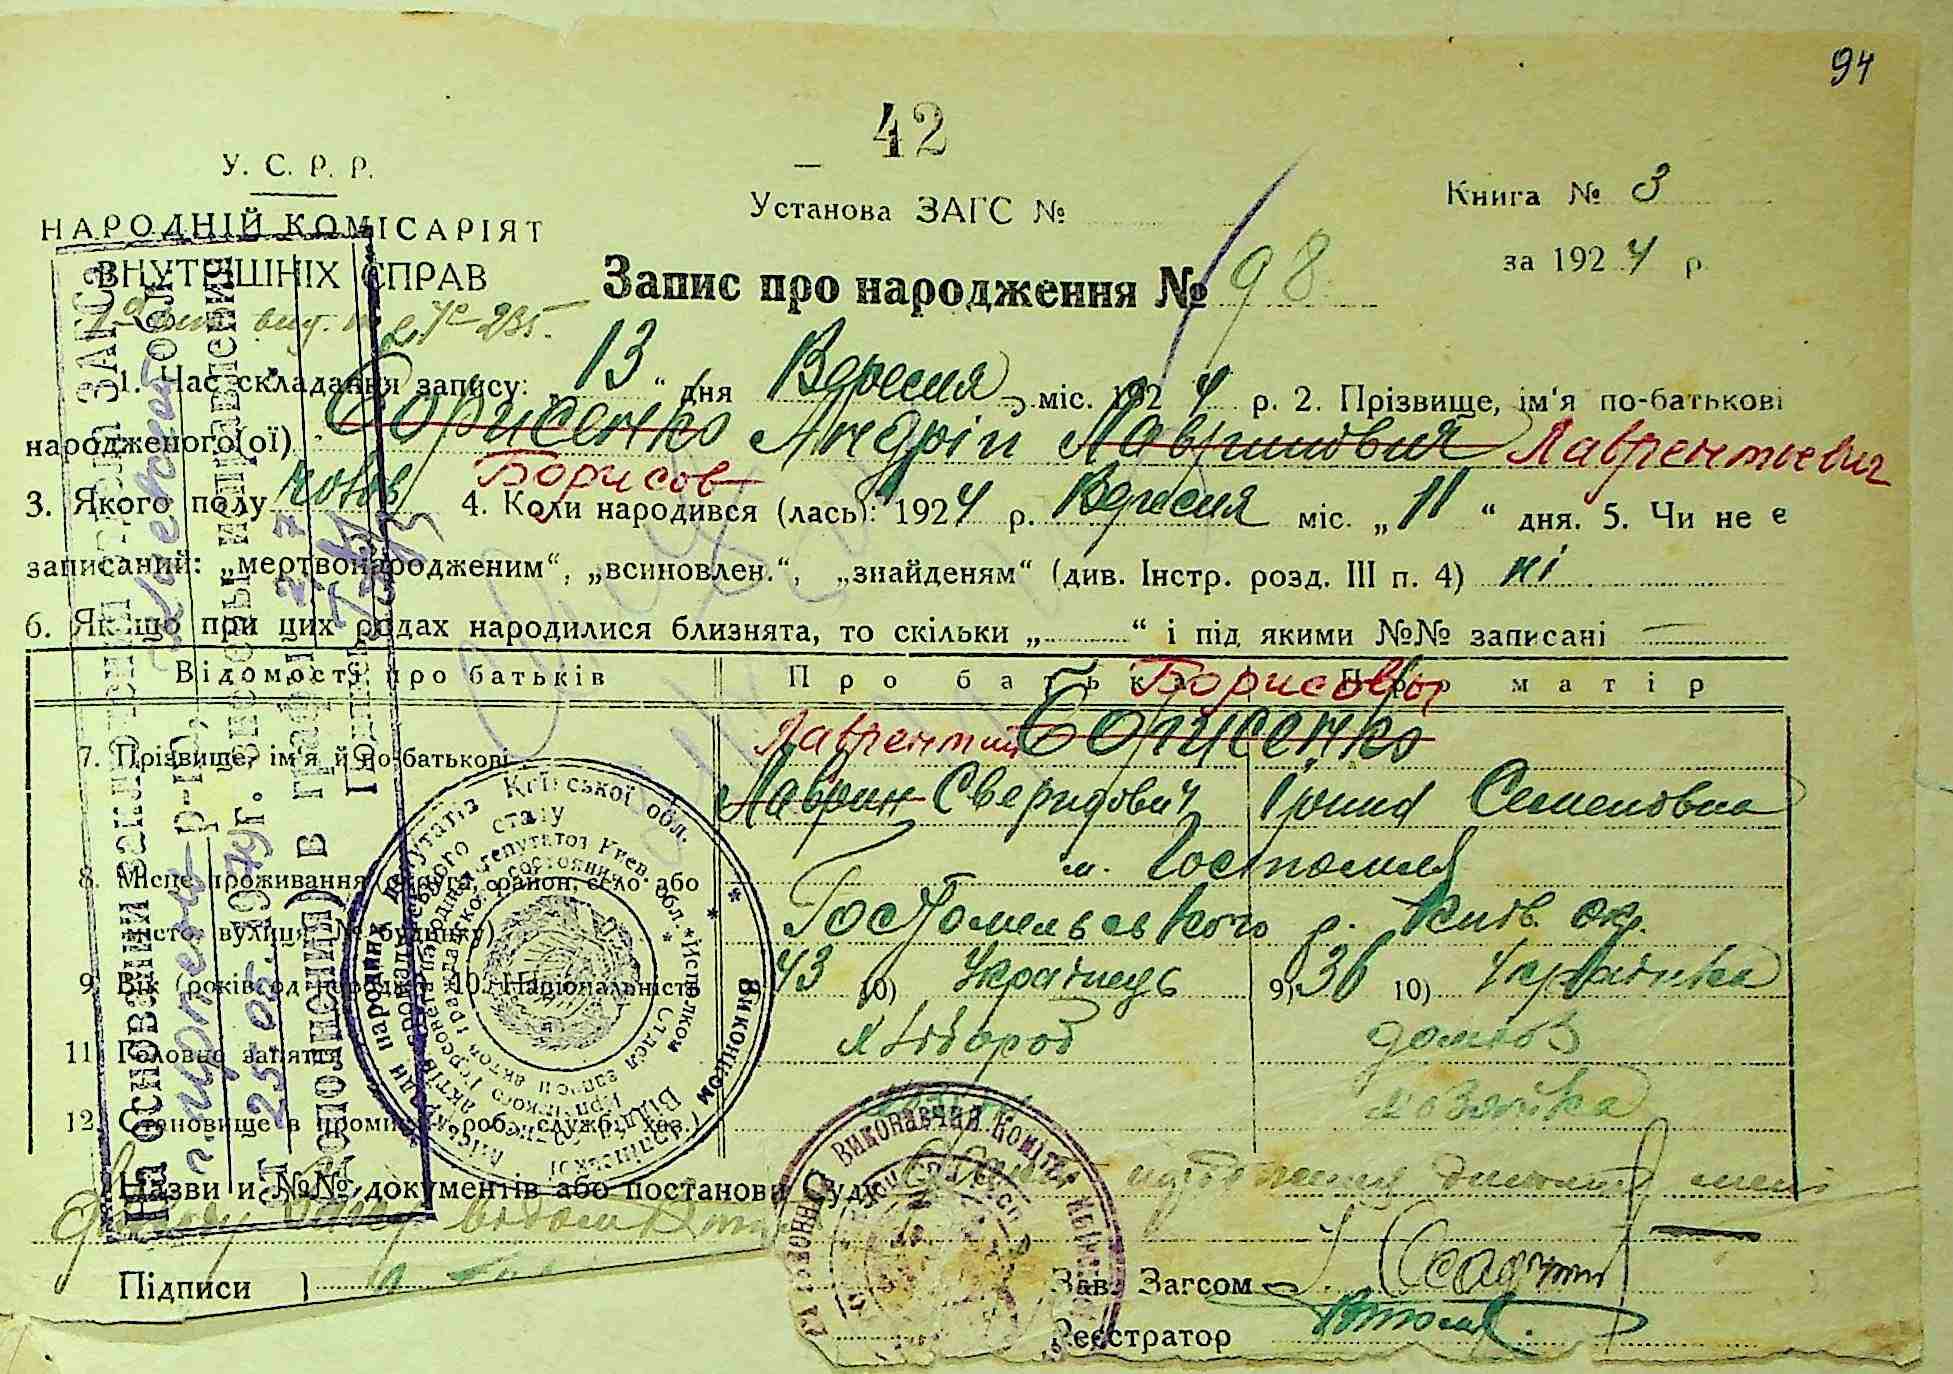 94
42
У. С. Р. Р.
НАРОДНІЙ КОМІСАРІЯТ
ВНУТРІШНІХ СПРАВ
Установа ЗАГС №
Книга № 3
за 1924 р.
Запис про народження № 98
1. Час складання запису: „13“ дня Вересня міс. 1924 р. 2. Прізвище, ім'я по-батькові
народженого(ої) Борисенко Андрій Лавринович Лаврентьевич
Борисов
3. Якого полу чолов 4. Коли народився (лась): 1924 р. Вересня міс. „11“ дня. 5. Чи не є
записаний: „мертвонародженим“, „всиновлен.“, „знайденям“ (див. Інстр. розд. III п. 4) ні
6. Якщо при цих родах народилися близнята, то скільки „ “ і під якими №№ записані —
Відомості про батьків Про батька Про матір
Борисовы
7. Прізвище, ім'я й по-батькові Лаврентий Борисенко
Лаврин Свиридович Семеновна
8. Місце проживання (округа, район, село або м. Гостомля
місто, вулиця № будинку) Гостомельського р. Київ. окр.
9. Вік (років од народж.) 10. Національність 43 10) Українець 9) 36 10) Українка
11. Головне заняття хлібороб домов
12. Становище в промислі (роб., службі, хаз.) хозяйка
Назви и №№ документів або постанови суду
Підписи
Зав. Загсом
Реєстратор
На основании заключения отдела ЗАГС
25.05.1979 г. внесены исправления
(дополнения) в графы 2, 7
Подпись